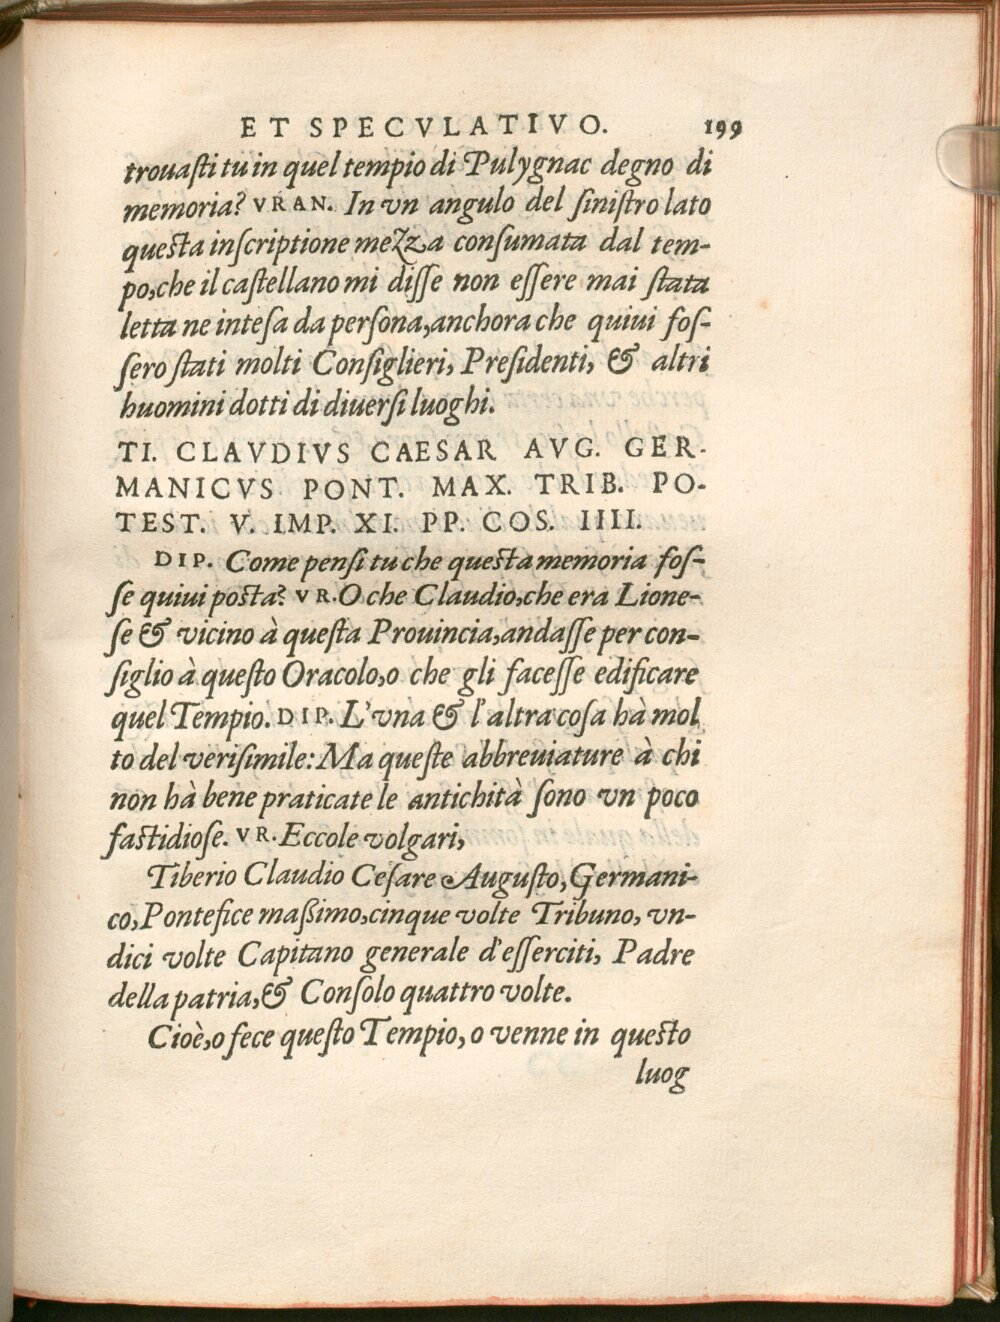 ET SPECVLATIVO. 199
trouasti tu in quel tempio di Pulygnac degno di
memoria? VRAN. In vn angulo del sinistro lato
questa inscriptione mezza consumata dal tem-
po, che il castellano mi disse non essere mai stata
letta ne intesa da persona, anchora che quiui fos-
sero stati molti Consiglieri, Presidenti, & altri
huomini dotti di diuersi luoghi.
TI. CLAVDIVS CAESAR AVG. GER-
MANICVS PONT. MAX. TRIB. PO-
TEST. V. IMP. XI. PP. COS. IIII.
DIP. Come pensi tu che questa memoria fos-
se quiui posta? VR. O che Claudio, che era Lione-
se & vicino à questa Prouincia, andasse per con-
siglio à questo Oracolo, o che gli facesse edificare
quel Tempio. DIP. L'vna & l'altra cosa hà mol
to del verisimile: Ma queste abbreuiature à chi
non hà bene praticate le antichità sono vn poco
fastidiose. VR. Eccole volgari,
Tiberio Claudio Cesare Augusto, Germani-
co, Pontefice maßimo, cinque volte Tribuno, vn-
dici volte Capitano generale d'esserciti, Padre
della patria, & Consolo quattro volte.
Cioè, o fece questo Tempio, o venne in questo
luog